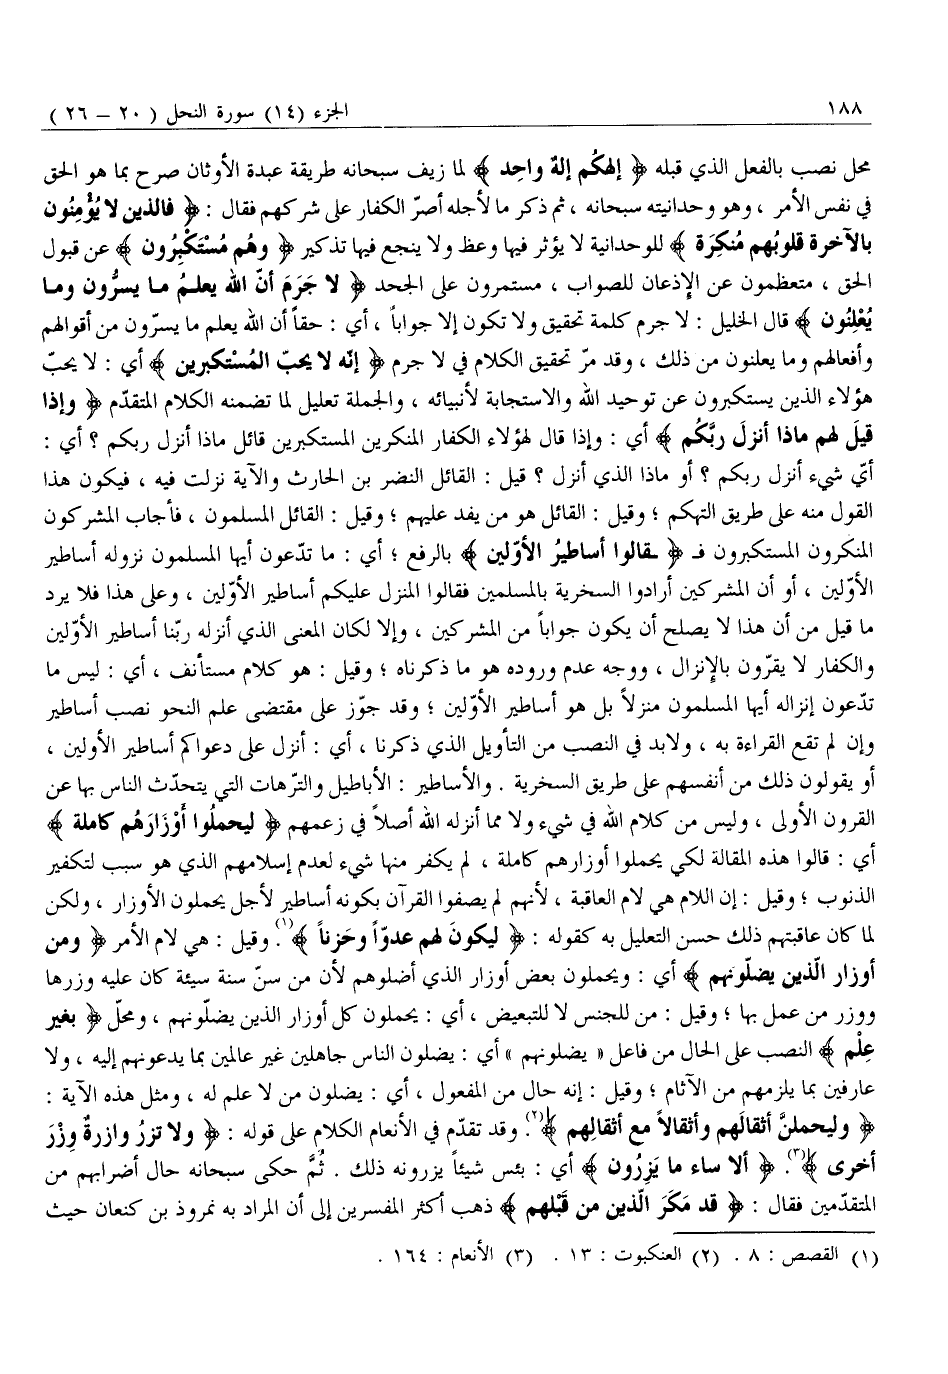 ١٨٨ الجزء (١٤) سورة النحل ( ٢٠ – ٢٦ )
محل نصب بالفعل الذي قبله ﴿ إلهكُم إلهٌ واحِد ﴾ لما زيف سبحانه طريقة عبدة الأوثان صرح بما هو الحق
في نفس الأمر ، وهو وحدانيته سبحانه ، ثم ذكر ما لأجله أصرّ الكفار على شركهم فقال : ﴿ فالذين لا يُؤْمِنُون
بالآخرة قلوبُهم مُنكِرَة ﴾ للوحدانية لا يؤثر فيها وعظ ولا ينجع فيها تذكير ﴿ وهُم مُسْتَكْبِرُون ﴾ عن قبول
الحق ، متعظمون عن الإذعان للصواب ، مستمرون على الجحد ﴿ لا جَرَمَ أنّ الله يعلـمُ مـا يسرُّون ومـا
يُعْلِنُون ﴾ قال الخليل : لا جرم كلمة تحقيق ولا تكون إلا جواباً ، أي : حقاً أن الله يعلم ما يسرّون من أقوالهم
وأفعالهم وما يعلنون من ذلك ، وقد مرّ تحقيق الكلام في لا جرم ﴿ إنّه لا يحبّ المُسْتكبرين ﴾ أي : لا يحبّ
هؤلاء الذين يستكبرون عن توحيد الله والاستجابة لأنبيائه ، والجملة تعليل لما تضمنه الكلام المتقدّم ﴿ وإذا
قيلَ لهم ماذا أنزلَ ربَّكُم ﴾ أي : وإذا قال لهؤلاء الكفار المنكرين المستكبرين قائل ماذا أنزل ربكم ؟ أي :
أيّ شيء أنزل ربكم ؟ أو ماذا الذي أنزل ؟ قيل : القائل النضر بن الحارث والآية نزلت فيه ، فيكون هذا
القول منه على طريق التهكم ؛ وقيل : القائل هو من يفد عليهم ؛ وقيل : القائل المسلمون ، فأجاب المشركون
المنكرون المستكبرون فـ ﴿ ـقالوا أساطيرُ الأوّلين ﴾ بالرفع ؛ أي : ما تدّعون أيها المسلمون نزوله أساطير
الأوّلين ، أو أن المشركين أرادوا السخرية بالمسلمين فقالوا المنزل عليكم أساطير الأوّلين ، وعلى هذا فلا يرد
ما قيل من أن هذا لا يصلح أن يكون جواباً من المشركين ، وإلا لكان المعنى الذي أنزله ربّنا أساطير الأوّلين
والكفار لا يقرّون بالإنزال ، ووجه عدم وروده هو ما ذكرناه ؛ وقيل : هو كلام مستأنف ، أي : ليس ما
تدّعون إنزاله أيها المسلمون منزلاً بل هو أساطير الأوّلين ؛ وقد جوّز على مقتضى علم النحو نصب أساطير
وإن لم تقع القراءة به ، ولابد في النصب من التأويل الذي ذكرنا ، أي : أنزل على دعواكم أساطير الأولين ،
أو يقولون ذلك من أنفسهم على طريق السخرية . والأساطير : الأباطيل والترّهات التي يتحدّث الناس بها عن
القرون الأولى ، وليس من كلام الله في شيء ولا مما أنزله الله أصلاً في زعمهم ﴿ ليحملُوا أَوْزَارَهُم كاملة ﴾
أي : قالوا هذه المقالة لكي يحملوا أوزارهم كاملة ، لم يكفر منها شيء لعدم إسلامهم الذي هو سبب لتكفير
الذنوب ؛ وقيل : إن اللام هي لام العاقبة ، لأنهم لم يصفوا القرآن بكونه أساطير لأجل يحملون الأوزار ، ولكن
لما كان عاقبتهم ذلك حسن التعليل به كقوله : ﴿ ليكونَ لهم عدوّاً وحَزناً ﴾(١). وقيل : هي لام الأمر ﴿ ومن
أوزار الّذين يضلّونهم ﴾ أي : ويحملون بعض أوزار الذي أضلوهم لأن من سنّ سنة سيئة كان عليه وزرها
ووزر من عمل بها ؛ وقيل : من للجنس لا للتبعيض ، أي : يحملون كل أوزار الذين يضلّونهم ، ومحلّ ﴿ بغير
عِلْم ﴾ النصب على الحال من فاعل « يضلونهم » أي : يضلون الناس جاهلين غير عالمين بما يدعونهم إليه ، ولا
عارفين بما يلزمهم من الآثام ؛ وقيل : إنه حال من المفعول ، أي : يضلون من لا علم له ، ومثل هذه الآية :
﴿ وليحملنَّ أثقالَهم وأثقالاً مع أثقالِهم ﴾(٢). وقد تقدّم في الأنعام الكلام على قوله : ﴿ ولا تزرُ وازرةٌ وِزْرَ
أخرى ﴾(٣). ﴿ ألا ساء ما يَزِرُون ﴾ أي : بئس شيئاً يزرونه ذلك . ثُمَّ حكى سبحانه حال أضرابهم من
المتقدّمين فقال : ﴿ قد مَكَرَ الّذين من قَبْلهم ﴾ ذهب أكثر المفسرين إلى أن المراد به نمروذ بن كنعان حيث
(١) القصص : ٨ . (٢) العنكبوت : ١٣ . (٣) الأنعام : ١٦٤ .